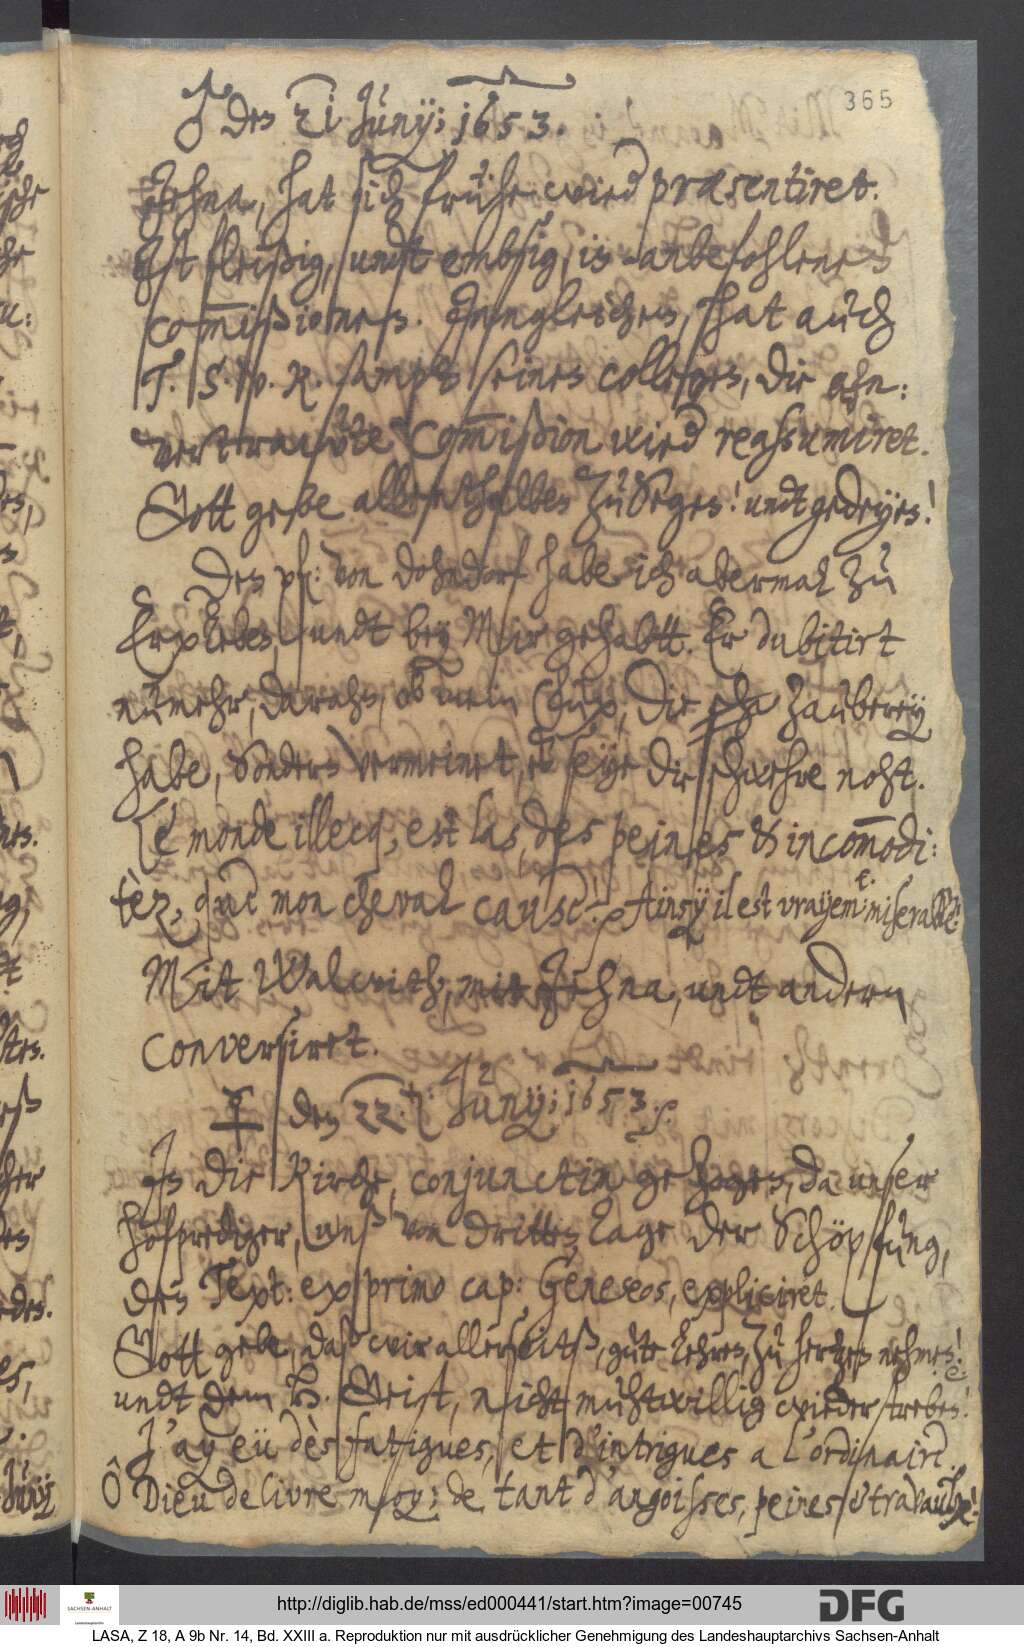 365
♂ den 21 Junÿ; 1653.
Jehna, hat sich frühe wied præsentiret.
Ist fleißig, undt embsig, in anbefohlenen
com̅ißionen. Jnngleichen, hat auch
T. S. P. R. sampt seinen collegen, die ahn:
vertrawte Com̅ißion wied reassumiret.
Gott gebe allenthalben zu Segen! undt gedeyen!
Den von Dohndorf habe ich abermal zu
Erxleben, undt bey Mir gehabtt. Er dubitirt
numehr, daran, ob mein die zauberey
habe, sondern vermeinet, es seye die schwehre noht.
Le monde illecq, est las, des peines & incom̅odi:
tèz, que mon cheval cause! Ainsy il est vrayem̅t miserable!
Mit Walwith, mit Jehna, undt andern
conversiret.
☿ den 22. Junÿ; 1653.
In die Kirche, conjunctim gezogen, da unser
hofprediger, unß von dritten tage der Schöpfung,
den Text: ex primo cap: Geneseos, expliciret.
Gott gebe, daß wir allerseitß, gute lehren, zu hertzen nehmen!
undt dem H. Geist, nicht muhtwillig wiederstreben!
J'ay eü dès fatigues, et d'intrigues a l'ordinaire.
Ô Dieu delivre moy; de tant d'angoisses, peines & travaulx!
Junÿ
http://diglib.hab.de/mss/ed000441/start.htm?image=00745
SACHSEN-ANHALT
DFG
LASA, Z 18, A 9b Nr. 14, Bd. XXIII a. Reproduktion nur mit ausdrücklicher Genehmigung des Landeshauptarchivs Sachsen-Anhalt